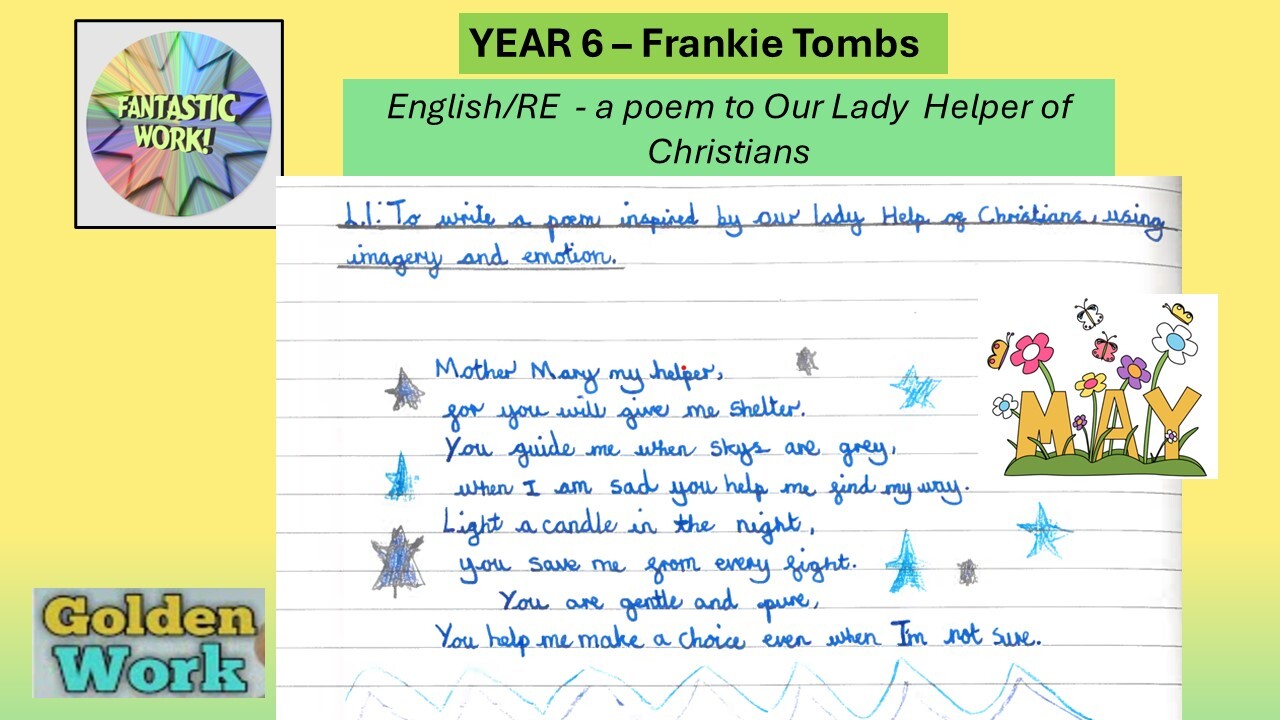 FANTASTIC
WORK!
YEAR 6 – Frankie Tombs
English/RE - a poem to Our Lady Helper of
Christians
L.I: To write a poem inspired by our lady Help of Christians, using
imagery and emotion.
Mother Mary my helper,
for you will give me shelter.
You guide me when skys are grey,
when I am sad you help me find my way.
Light a candle in the night,
you save me from every fight.
You are gentle and pure,
You help me make a choice even when I'm not sure.
MAY
Golden
Work